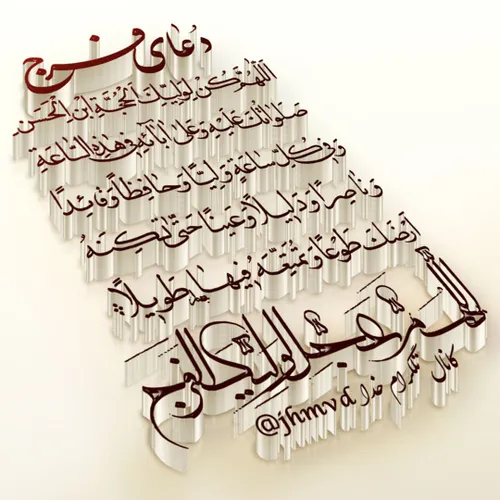 دعای فرج
اَللّهُمَّ كُنْ لِوَلِيِّكَ الْحُجَّةِ ابْنِ الْحَسَنِ
صَلَواتُكَ عَلَيْهِ وَعَلى آبائِهِ في هذِهِ السّاعَةِ
وَفي كُلِّ ساعَةٍ وَلِيّاً وَحافِظاً وَقائِداً
وَناصِراً وَدَليلاً وَعَيْناً حَتّى تُسْكِنَهُ
أَرْضَكَ طَوْعاً وَتُمَتِّعَهُ فيها طَويلاً
اللهم عجل لولیک الفرج
کانال تلگرام خدا @jhmvd